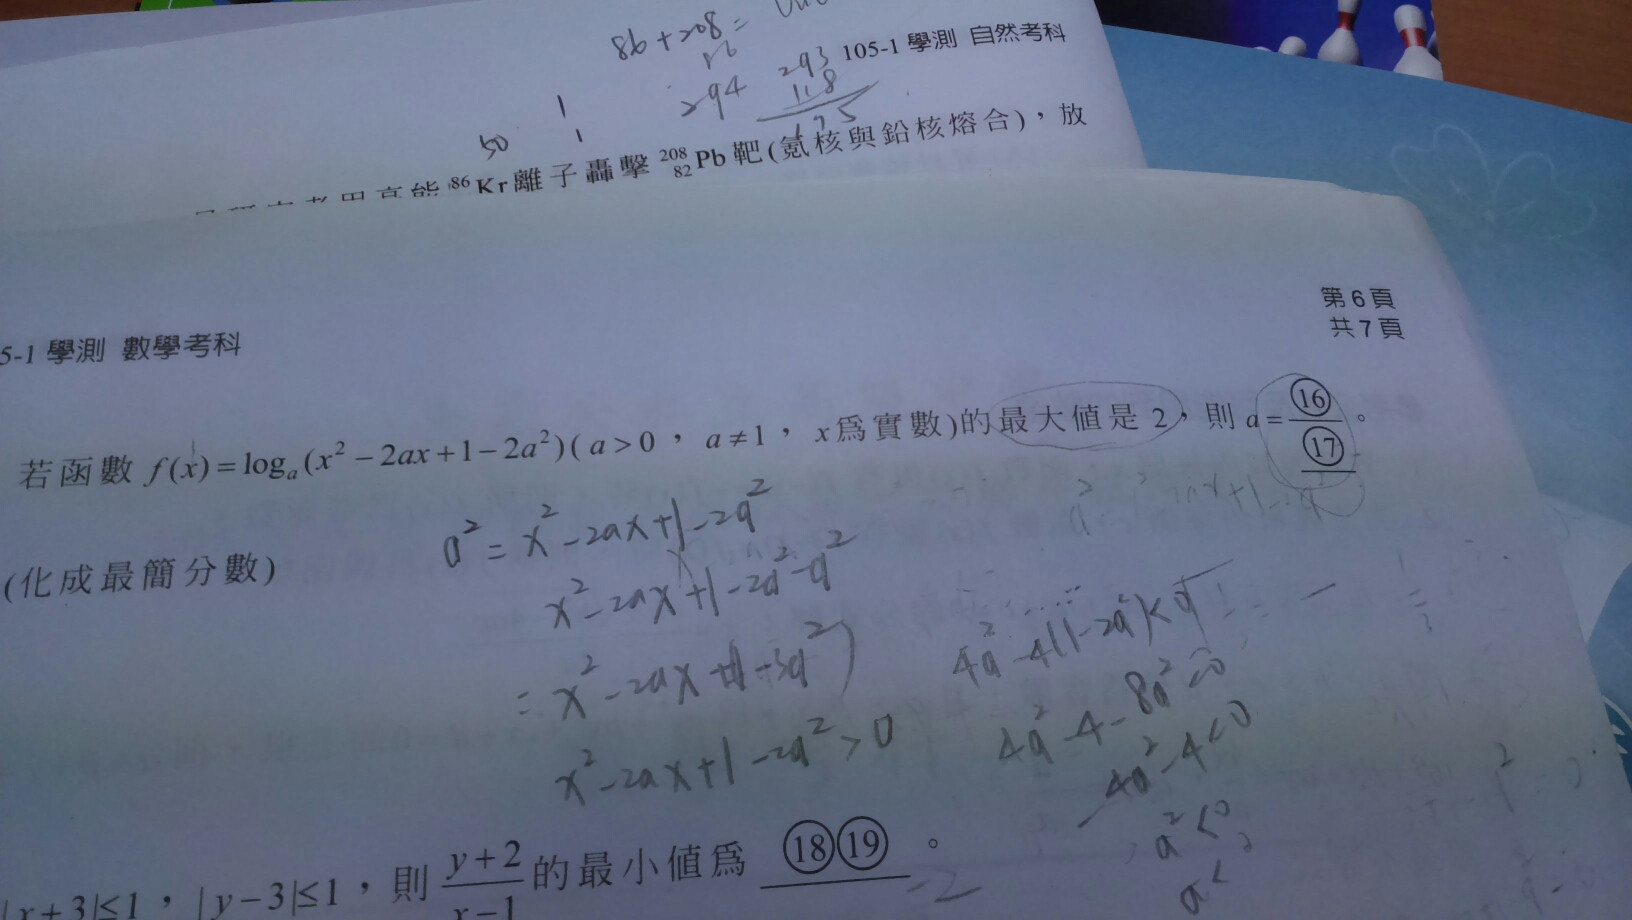 86+208=
105-1 學測 自然考科
294
293
118
175
50
1
1
⁸⁶Kr離子轟擊 ²⁰⁸₈₂Pb靶(氪核與鉛核熔合)，放
第6頁
共7頁
5-1 學測 數學考科
若函數 f(x)=logₐ(x²−2ax+1−2a²)(a>0，a≠1，x為實數)的最大值是 2，則 a=⑯/⑰。
(化成最簡分數)
a²=x²-2ax+1-2a²
x²-2ax+1-2a²-a²
=x²-2ax+1-3a²)
x²-2ax+1-2a²>0
4a²-4(1-2a²)<
4a²-4-8a²
4a²-4<0
a²<
a<
|x+3|≤1，|y−3|≤1，則 (y+2)/(x−1) 的最小值為 ⑱⑲。
-2